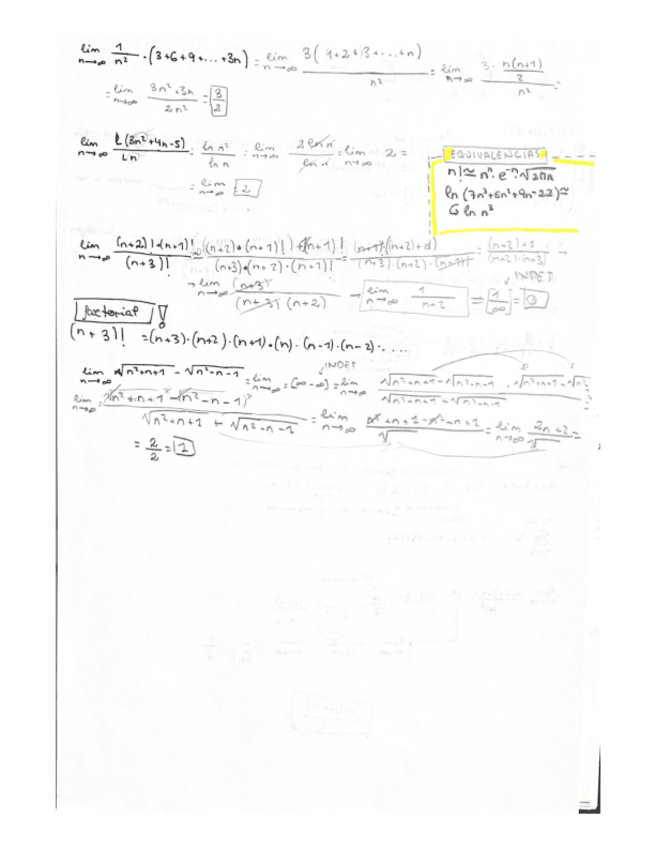 lim n→∞ 1/n² · (3+6+9+...+3n) = lim n→∞ 3(1+2+3+...+n)/n² = lim n→∞ 3· n(n+1)/2 / n² =
= lim n→∞ 3n²+3n / 2n² = 3/2
lim n→∞ L(3n²+4n-5)/Ln = ln n²/ln n = lim n→∞ 2 ln n/ln n = lim n→∞ 2 =
= lim n→∞ 2
EQUIVALENCIAS
n! ≃ nⁿ · e⁻ⁿ · √2πn
ln (7n³+5n²+9n-22) ≃
ln n³
lim n→∞ (n+2)!+(n+1)! / (n+3)! = (n+2)·(n+1)!+(n+1)! / (n+3)·(n+2)·(n+1)! = (n+1)!((n+2)+1) / (n+3)·(n+2)·(n+1)! = (n+2)+1 / (n+2)·(n+3) →
→ lim n→∞ (n+3) / (n+3)(n+2) → lim n→∞ 1 / n+2 = [1/∞] = 0
INDET
factorial !
(n+3)! = (n+3)·(n+2)·(n+1)·(n)·(n-1)·(n-2)·....
INDET
lim n→∞ √n²+n+1 - √n²-n-1 = lim n→∞ = [∞-∞] = lim n→∞ √n²+n+1 - √n²-n-1 · √n²+n+1 + √n² / √n²+n+1 + √n²-n-1 =
lim n→∞ (n²+n+1 - (n²-n-1)) / √n²+n+1 + √n²-n-1 = lim n→∞ n²+n+1-n²+n+1 / √ = lim n→∞ 2n+2 / √ =
= 2/2 = 1